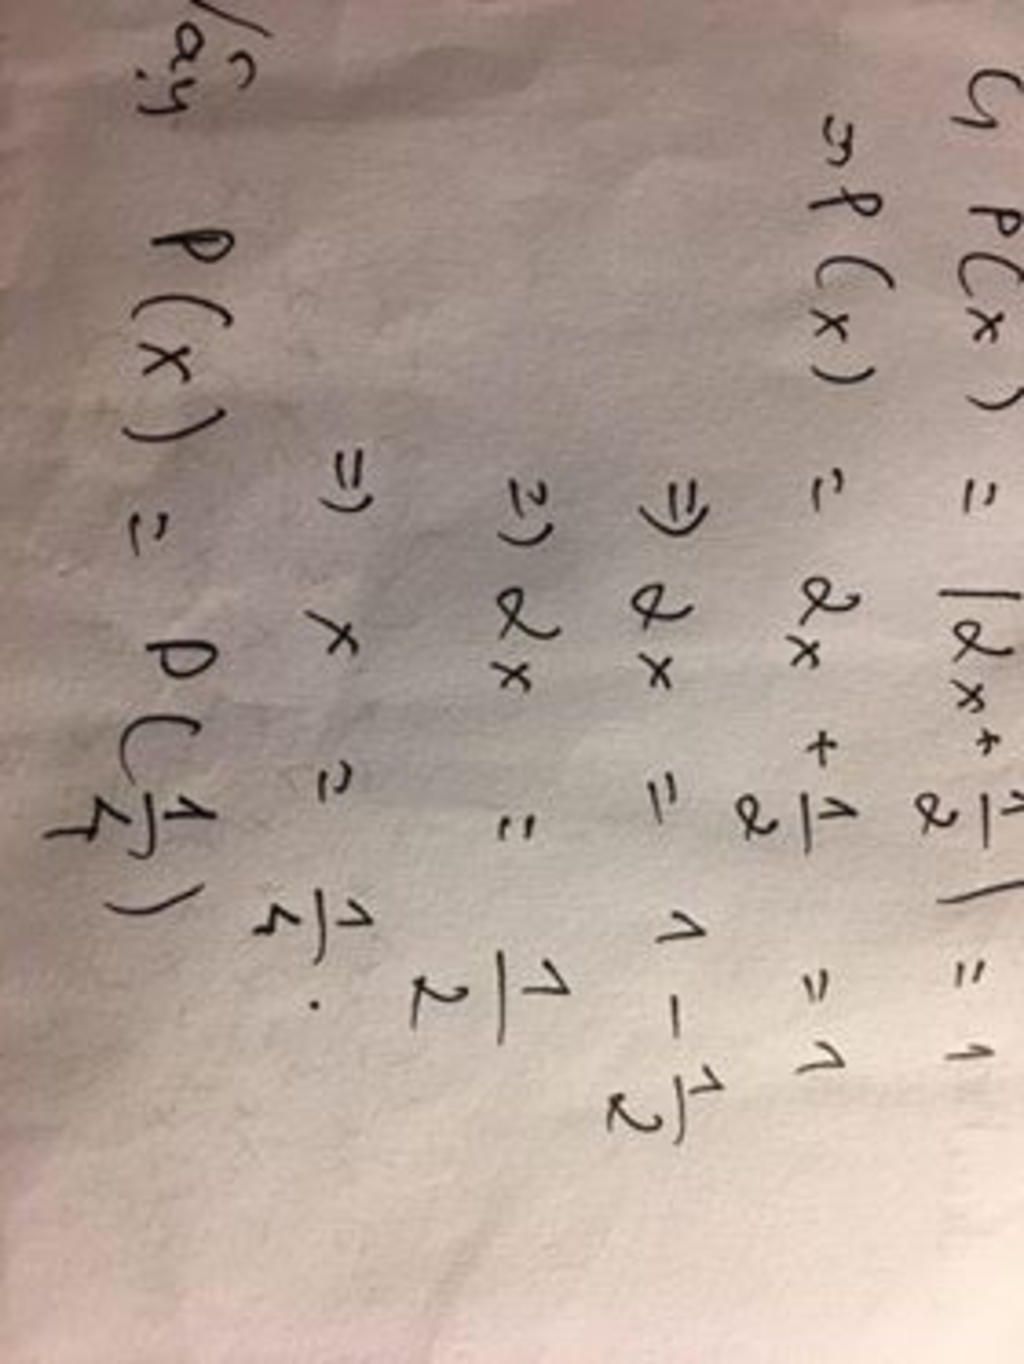 P(x) = |2x + 1/2| = 1
P(x) = 2x + 1/2 = 1
=) 2x = 1 - 1/2
=) 2x = 1/2
=) x = 1/4.
Vậy P(x) = P(1/4)